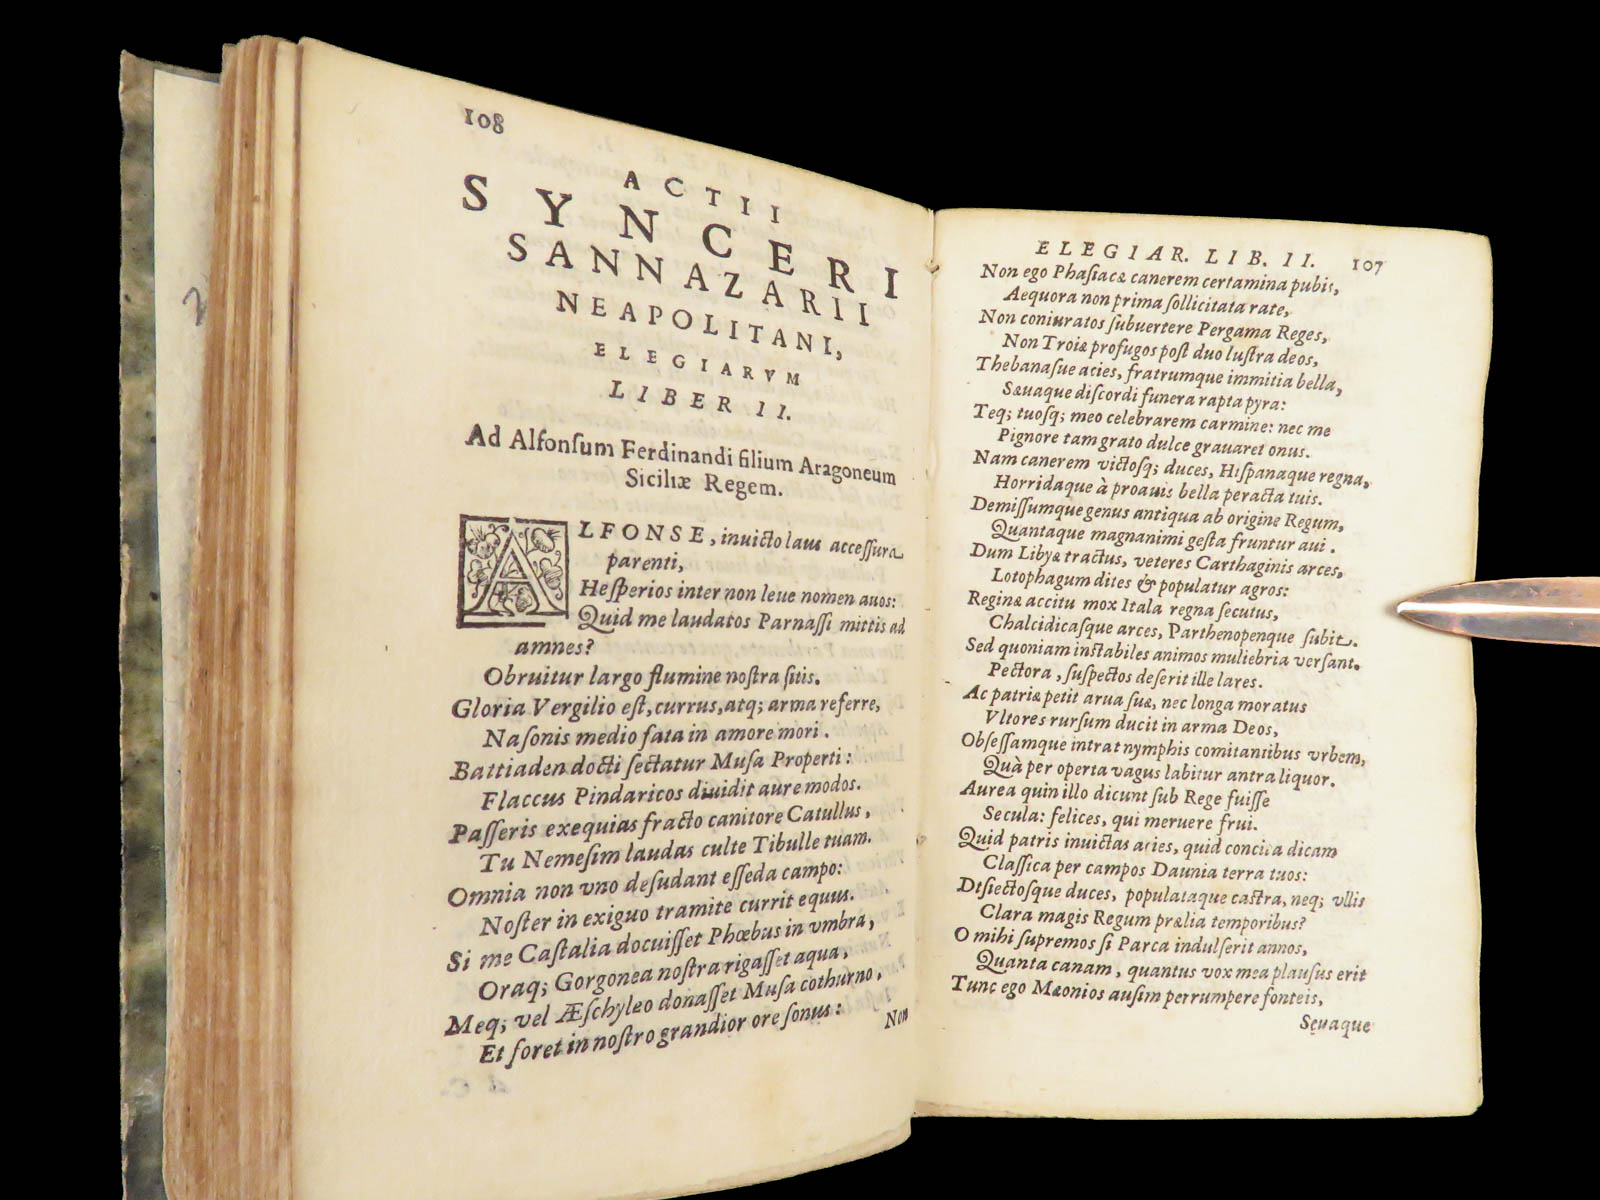 108
ACTII
SYNCERI
SANNAZARII
NEAPOLITANI,
ELEGIARVM
LIBER II.
Ad Alfonſum Ferdinandi filium Aragoneum
Siciliæ Regem.
ALFONSE, inuicto laus acceſſura
parenti,
Heſperios inter non leue nomen auos:
Quid me laudatos Parnaſſi mittis ad
amnes?
Obruitur largo flumine noſtra ſitis.
Gloria Vergilio eſt, currus, atq; arma referre,
Naſonis medio fata in amore mori.
Battiaden docti ſectatur Muſa Properti:
Flaccus Pindaricos diuidit aure modos.
Paſſeris exequias fracto canit ore Catullus,
Tu Nemeſim laudas culte Tibulle tuam.
Omnia non vno deſudant eſſeda campo:
Noſter in exiguo tramite currit equus.
Si me Caſtalia docuiſſet Phœbus in vmbra,
Oraq; Gorgonea noſtra rigaſſet aqua,
Meq; vel Æſchyleo donaſſet Muſa cothurno,
Et foret in noſtro grandior ore ſonus:
Non
ELEGIAR. LIB. II. 107
Non ego Phaſiacæ canerem certamina pubis,
Aequora non prima ſollicitata rate,
Non coniuratos ſubuertere Pergama Reges,
Non Troiæ profugos poſt duo luſtra deos,
Thebanaſue acies, fratrumque immitia bella,
Sæuaque diſcordi funera rapta pyra:
Teq; tuoſq; meo celebrarem carmine: nec me
Pignore tam grato dulce grauaret onus.
Nam canerem victoſq; duces, Hiſpanaque regna,
Horridaque à proauis bella peracta tuis.
Demiſſumque genus antiqua ab origine Regum,
Quantaque magnanimi geſta fruntur aui.
Dum Libyæ tractus, veteres Carthaginis arces,
Lotophagum dites & populatur agros:
Reginæ accitu mox Itala regna ſecutus,
Chalcidicaſque arces, Parthenopenque ſubit.
Sed quoniam inſtabiles animos muliebria verſant
Pectora, ſuſpectos deſerit ille lares.
Ac patriæ petit arua ſuæ, nec longa moratus
Vltores rurſum ducit in arma Deos,
Obſeſſamque intrat nymphis comitantibus vrbem,
Quà per operta vagus labitur antra liquor.
Aurea quin illo dicunt ſub Rege fuiſſe
Secula: felices, qui meruere frui.
Quid patris inuictas acies, quid concita dicam
Claſſica per campos Daunia terra tuos:
Diſiectoſque duces, populataque caſtra, neq; vllis
Clara magis Regum prælia temporibus?
O mihi ſupremos ſi Parca indulſerit annos,
Quanta canam, quantus vox mea plauſus erit
Tunc ego Mæonios auſim perrumpere fonteis,
Sęuaque